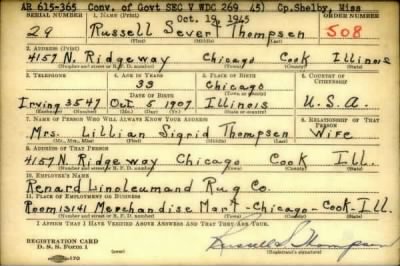 AR 615-365 Conv. of Govt SEC V WDC 269 45) Cp.Shelby, Miss
Oct. 19, 1945
SERIAL NUMBER 1. NAME (Print) ORDER NUMBER
29 Russell Severt Thompsen 508
(First) (Middle) (Last)
2. ADDRESS (Print)
4157 N. Ridgeway Chicago Cook Illinois
(Number and street or R. F. D. number) (Town) (County) (State)
3. TELEPHONE 4. AGE IN YEARS 5. PLACE OF BIRTH 6. COUNTRY OF CITIZENSHIP
33 Chicago
DATE OF BIRTH (Town or county)
Irving 3547 Oct 5 1907 Illinois U.S.A.
(Exchange) (Number) (Mo.) (Day) (Yr.) (State or country)
7. NAME OF PERSON WHO WILL ALWAYS KNOW YOUR ADDRESS 8. RELATIONSHIP OF THAT PERSON
Mrs. Lillian Sigrid Thompsen Wife
(Mr., Mrs., Miss) (First) (Middle) (Last)
9. ADDRESS OF THAT PERSON
4157 N. Ridgeway Chicago Cook Ill.
(Number and street or R. F. D. number) (Town) (County) (State)
10. EMPLOYER'S NAME
Renard Linoleumand Rug Co.
11. PLACE OF EMPLOYMENT OR BUSINESS
Room 13141 Merchandise Mart-Chicago-Cook-Ill.
(Number and street or R. F. D. number) (Town) (County) (State)
I AFFIRM THAT I HAVE VERIFIED ABOVE ANSWERS AND THAT THEY ARE TRUE.
REGISTRATION CARD
D. S. S. Form 1
Russell S. Thompsen